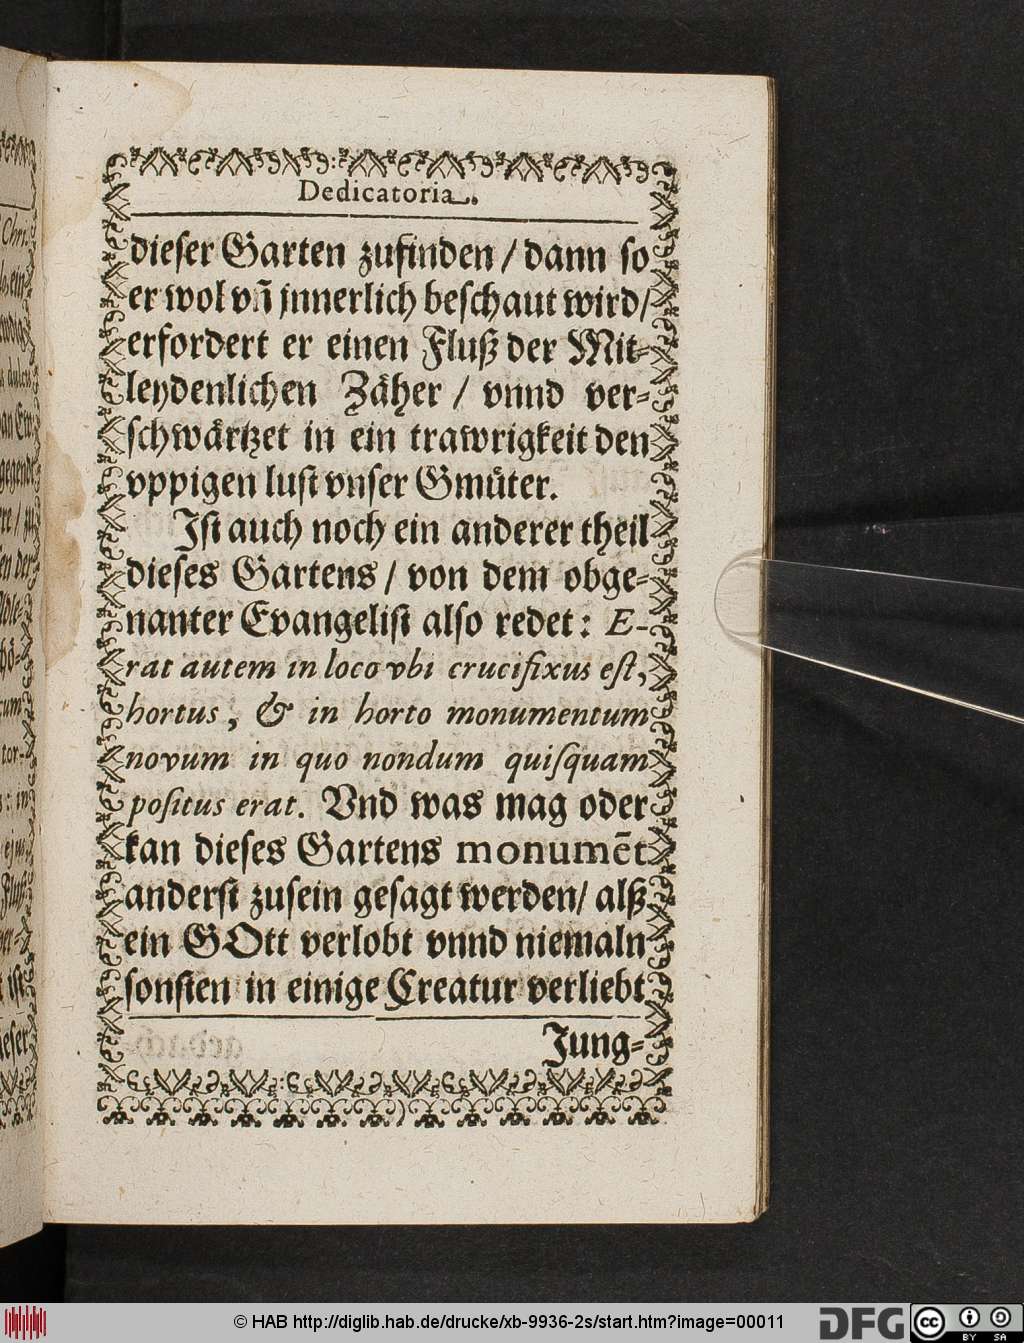 Dedicatoria.
dieser Garten zufinden / dann so
er wol vñ jnnerlich beschaut wird /
erfordert er einen Fluß der Mit-
leydenlichen Zäher / vnnd ver-
schwärtzet in ein trawrigkeit den
vppigen lust vnser Gmüter.
Ist auch noch ein anderer theil
dieses Gartens / von dem obge-
nanter Evangelist also redet: E-
rat autem in loco vbi crucifixus est,
hortus, & in horto monumentum
novum in quo nondum quisquam
positus erat. Vnd was mag oder
kan dieses Gartens monumẽt
anderst zusein gesagt werden / alß
ein GOtt verlobt vnnd niemaln
sonsten in einige Creatur verliebt
Jung-
© HAB http://diglib.hab.de/drucke/xb-9936-2s/start.htm?image=00011
DFG
cc BY SA